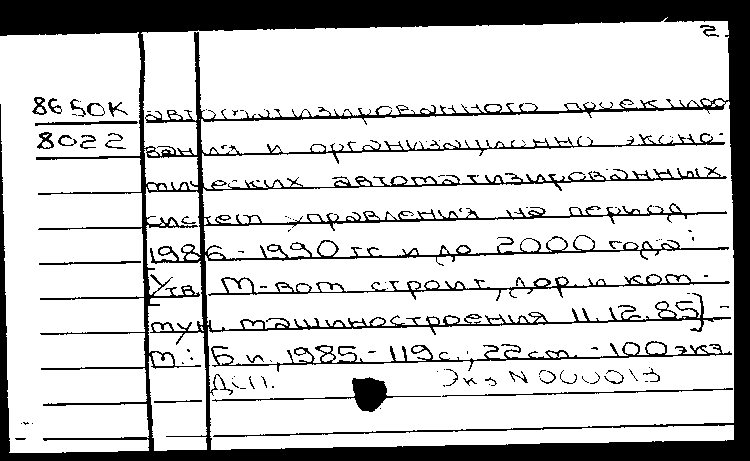 2.
8650К автоматизированного проектиро
8022 вания и организационно эконо-
мических автоматизированных
систем управления на период
1986-1990 гг и до 2000 года:
Утв. М-вом строит., дор. и ком-
мун. машиностроения 11.12.85] -
М.: Б.и., 1985.-119с.; 22см. -100экз.
ДСП. Экз N 000013